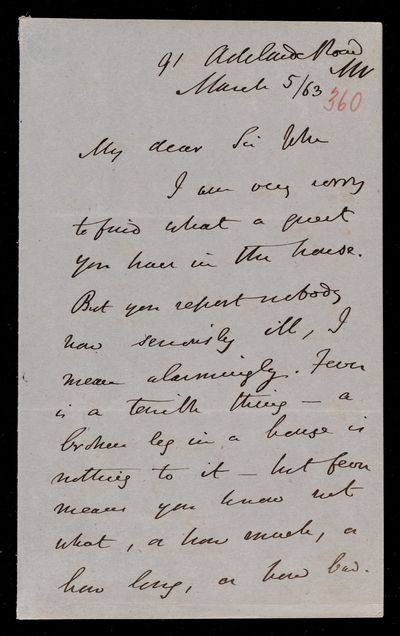 91 Adelaide Road
NW
March 5/63
360
My dear Sir John
I am very sorry
to find what a guest
you have in the house.
But you report nobody
now seriously ill, I
mean alarmingly. Fever
is a terrible thing — a
broken leg in a house is
nothing to it — but fever
means you know not
what, or how much, or
how long, or how bad.